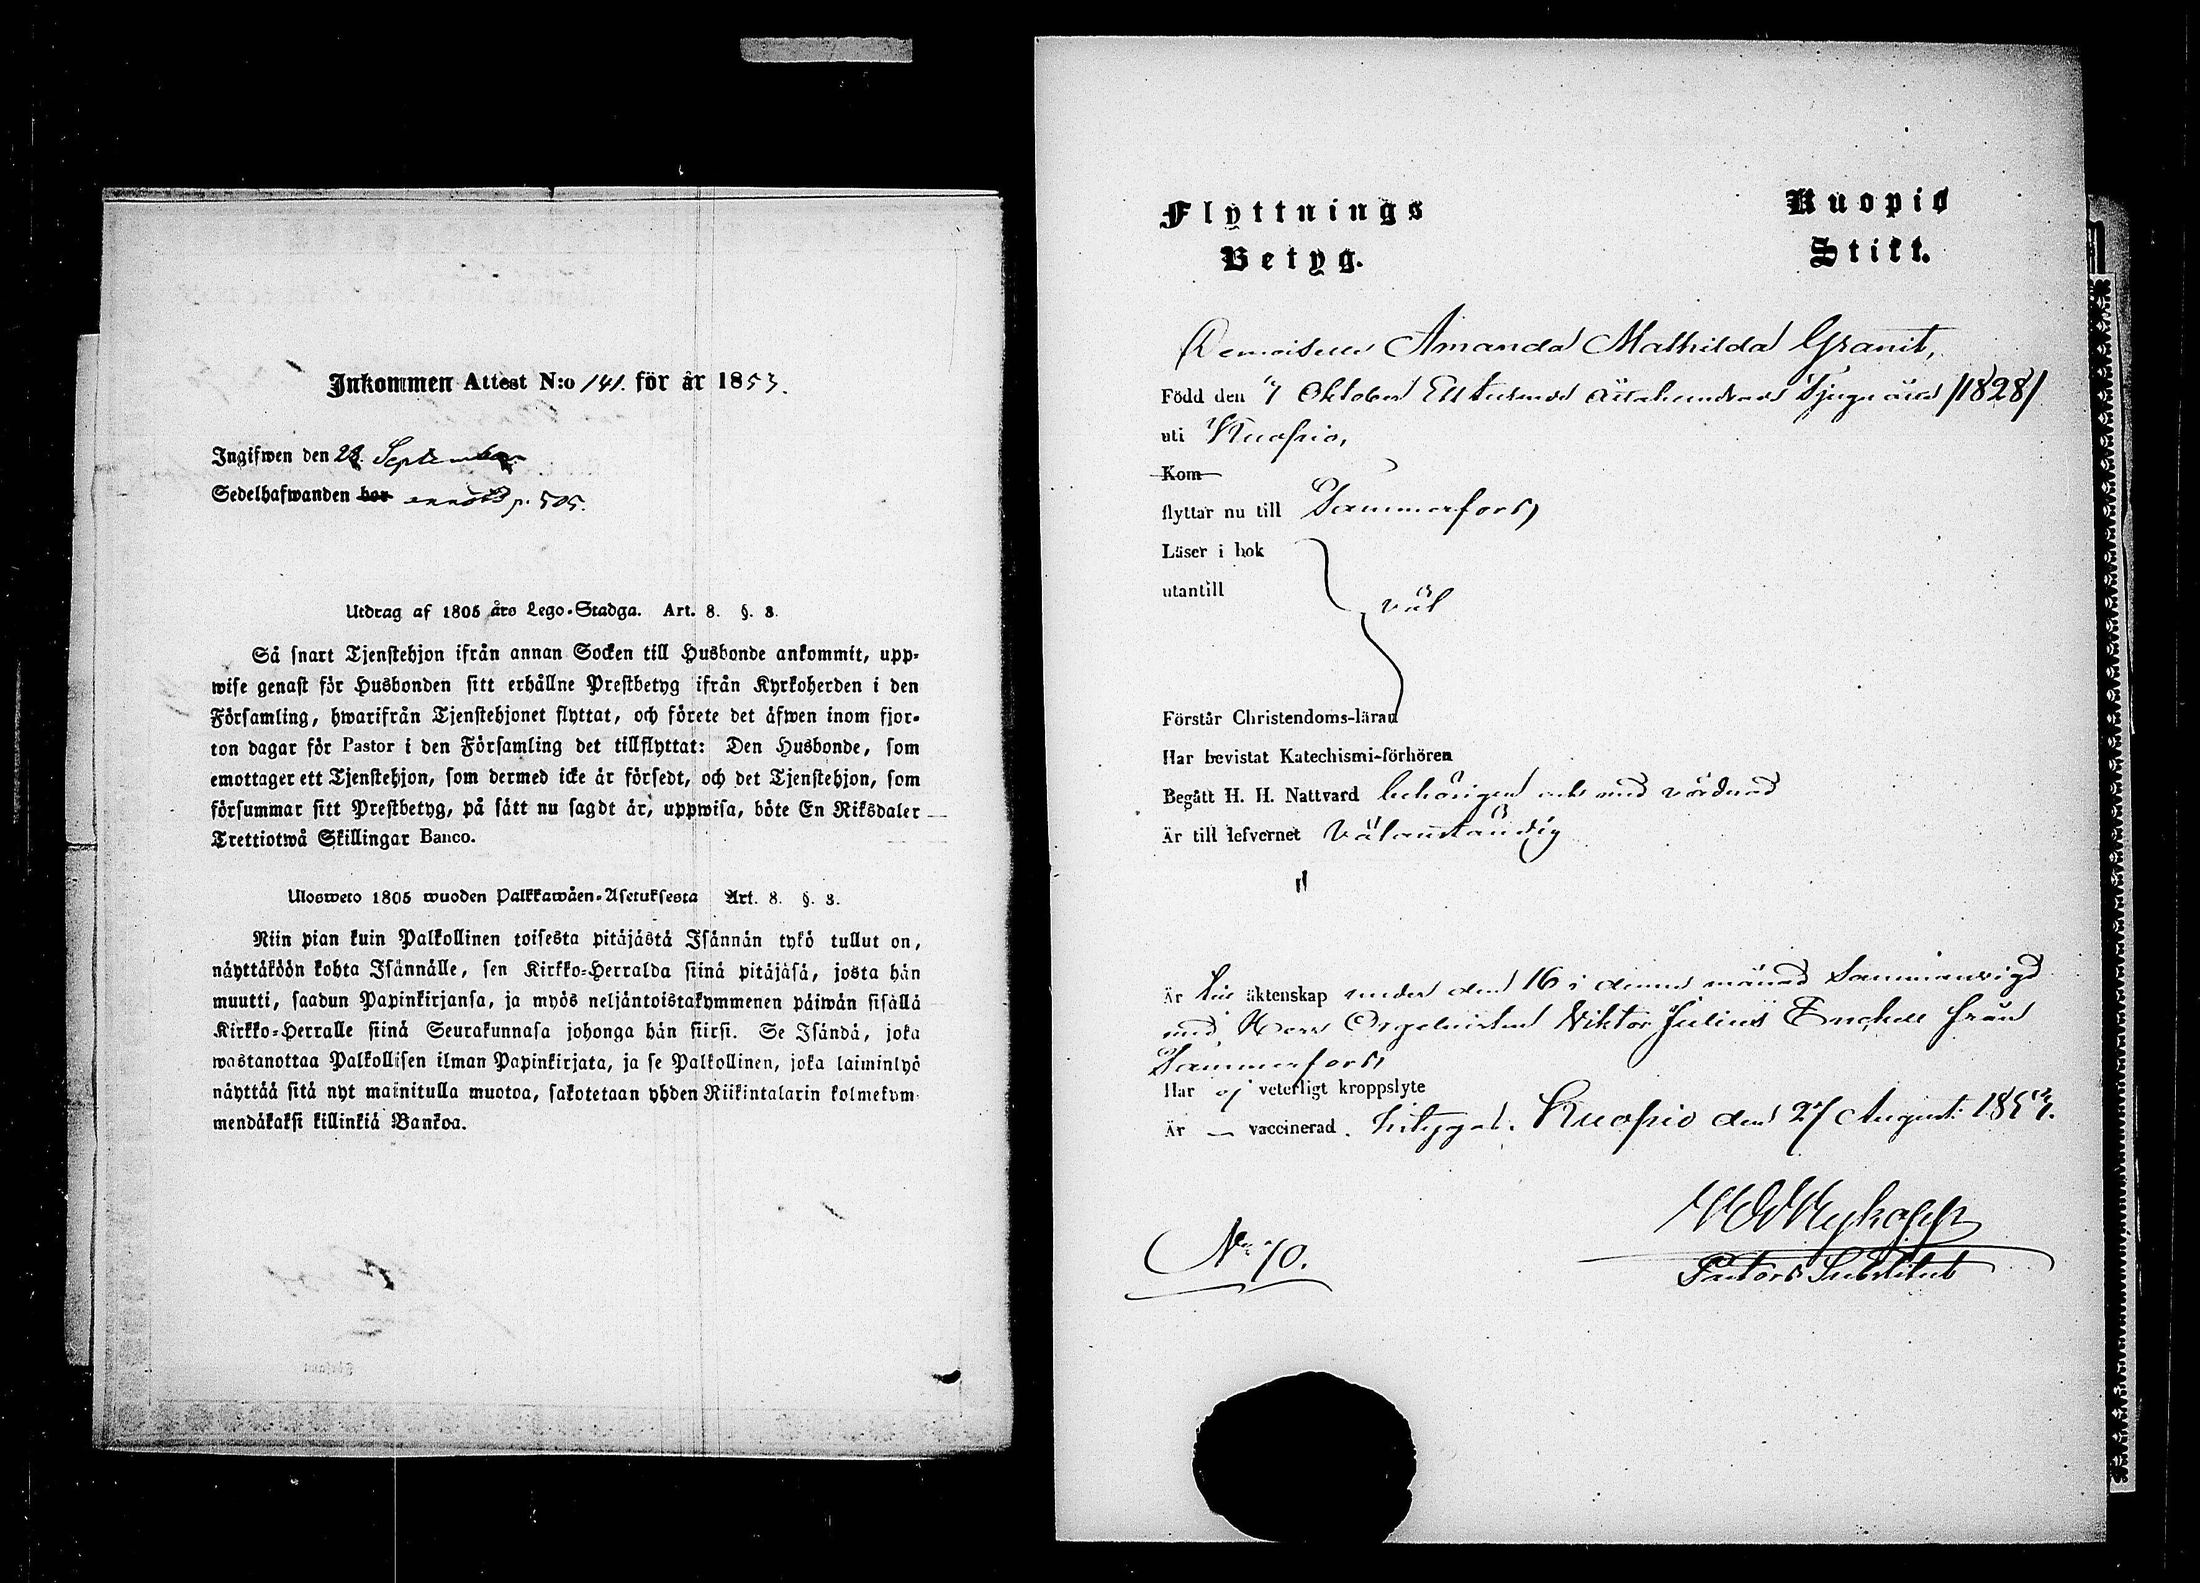 Inkommen Attest N:o 141. för år 1853.
Ingifwen den 28. September
Sedelhafwanden bor p. 505.
Utdrag af 1805 års Lego-Stadga. Art. 8. §. 3.
Så snart Tjenstehjon ifrån annan Socken till Husbonde ankommit, upp-
wise genast för Husbonden sitt erhållne Prestbetyg ifrån Kyrkoherden i den
Församling, hwarifrån Tjenstehjonet flyttat, och förete det äfwen inom fjor-
ton dagar för Pastor i den Församling det tillflyttat: Den Husbonde, som
emottager ett Tjenstehjon, som dermed icke är försedt, och det Tjenstehjon, som
försummar sitt Prestbetyg, på sätt nu sagdt är, uppwisa, böte En Riksdaler
Trettiotwå Skillingar Banco.
Ulosweto 1805 wuoden Palkkawäen-Asetuksesta Art. 8. §. 3.
Niin pian kuin Palkollinen toisesta pitäjästä Isännän tykö tullut on,
näyttäköön kohta Isännälle, sen Kirkko-Herralda siinä pitäjäsä, josta hän
muutti, saadun Papinkirjansa, ja myös neljäntoistakymmenen päiwän sisällä
Kirkko-Herralle siinä Seurakunnasa johonga hän siirsi. Se Isändä, joka
wastanottaa Palkollisen ilman Papinkirjata, ja se Palkollinen, joka laiminlyö
näyttää sitä nyt mainitulla muotoa, sakotetaan yhden Riikintalarin kolmekym
mendäkaksi killinkiä Bankoa.
Flyttnings
Betyg.
Kuopio
Stift.
Demoiselle Amanda Mathilda Granit,
Född den 7 Oktober Ett tusende åttahundrade Tjuguåtta /1828/
uti Kuopio,
Kom
flyttar nu till Tammerfors,
Läser i bok
utantill
väl
Förstår Christendoms-läran
Har bevistat Katechismi-förhören
Begått H. H. Nattvard behörigen och med vördnad
Är till lefvernet Välanständig
Är till äktenskap under den 16 i denna månad Sammanvigd
med Herr Orgelnisten Viktor Julius Enckell från
Tammerfors,
Har ej veterligt kroppslyte
Är — vaccinerad. betygar. Kuopio den 27 Augusti 1853.
Pastors Substitut
No 70.